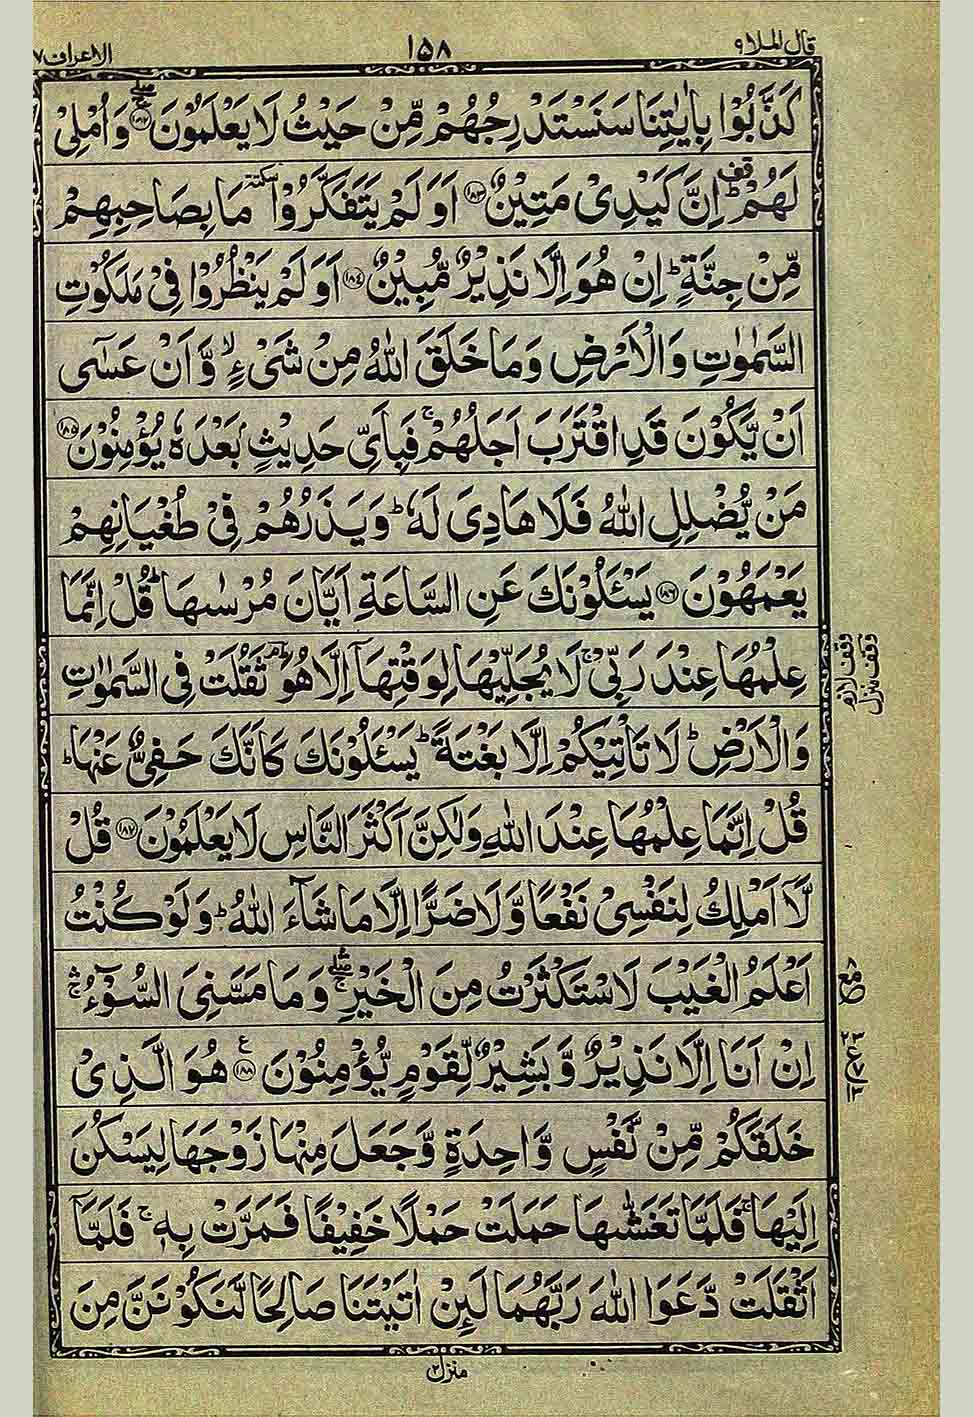 قال الملا ٩
١٥٨
الاعراف ٧
كَذَّبُوْا بِاٰيٰتِنَا سَنَسْتَدْرِجُهُمْ مِّنْ حَيْثُ لَا يَعْلَمُوْنَ ﴿١٨٢﴾ وَاُمْلِىْ
لَهُمْ ؕ قف اِنَّ كَيْدِىْ مَتِيْنٌ ﴿١٨٣﴾ اَوَلَمْ يَتَفَكَّرُوْا سكتة مَا بِصَاحِبِهِمْ
مِّنْ جِنَّةٍ ؕ اِنْ هُوَ اِلَّا نَذِيْرٌ مُّبِيْنٌ ﴿١٨٤﴾ اَوَلَمْ يَنْظُرُوْا فِىْ مَلَكُوْتِ
السَّمٰوٰتِ وَالْاَرْضِ وَمَا خَلَقَ اللّٰهُ مِنْ شَىْءٍ ۙ وَّاَنْ عَسٰٓى
اَنْ يَّكُوْنَ قَدِ اقْتَرَبَ اَجَلُهُمْ ۚ فَبِاَىِّ حَدِيْثٍۭ بَعْدَهٗ يُؤْمِنُوْنَ ﴿١٨٥﴾
مَنْ يُّضْلِلِ اللّٰهُ فَلَا هَادِىَ لَهٗ ؕ وَيَذَرُهُمْ فِىْ طُغْيَانِهِمْ
يَعْمَهُوْنَ ﴿١٨٦﴾ يَسْـَٔلُوْنَكَ عَنِ السَّاعَةِ اَيَّانَ مُرْسٰىهَا ؕ قُلْ اِنَّمَا
عِلْمُهَا عِنْدَ رَبِّىْ ۚ لَا يُجَلِّيْهَا لِوَقْتِهَآ اِلَّا هُوَ ۘ ثَقُلَتْ فِى السَّمٰوٰتِ
وَالْاَرْضِ ؕ لَا تَاْتِيْكُمْ اِلَّا بَغْتَةً ؕ يَسْـَٔلُوْنَكَ كَاَنَّكَ حَفِىٌّ عَنْهَا ؕ
قُلْ اِنَّمَا عِلْمُهَا عِنْدَ اللّٰهِ وَلٰكِنَّ اَكْثَرَ النَّاسِ لَا يَعْلَمُوْنَ ﴿١٨٧﴾ قُلْ
لَّآ اَمْلِكُ لِنَفْسِىْ نَفْعًا وَّلَا ضَرًّا اِلَّا مَا شَآءَ اللّٰهُ ؕ وَلَوْ كُنْتُ
اَعْلَمُ الْغَيْبَ لَاسْتَكْثَرْتُ مِنَ الْخَيْرِ ۛۚ وَمَا مَسَّنِىَ السُّوْٓءُ ۛۚ
اِنْ اَنَا اِلَّا نَذِيْرٌ وَّبَشِيْرٌ لِّقَوْمٍ يُّؤْمِنُوْنَ ﴿١٨٨﴾ ع هُوَ الَّذِىْ
خَلَقَكُمْ مِّنْ نَّفْسٍ وَّاحِدَةٍ وَّجَعَلَ مِنْهَا زَوْجَهَا لِيَسْكُنَ
اِلَيْهَا ۚ فَلَمَّا تَغَشّٰىهَا حَمَلَتْ حَمْلًا خَفِيْفًا فَمَرَّتْ بِهٖ ۚ فَلَمَّآ
اَثْقَلَتْ دَّعَوَا اللّٰهَ رَبَّهُمَا لَئِنْ اٰتَيْتَنَا صَالِحًا لَّنَكُوْنَنَّ مِنَ
وقف لازم
وقف منزل
منزل ٢